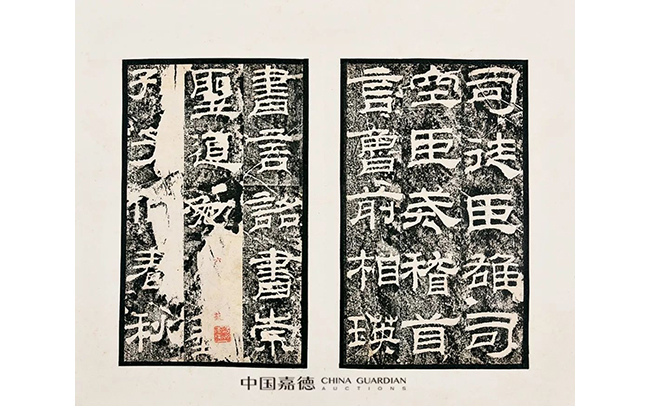 司徒臣雄司
空臣戒稽首
言魯前相瑛
書言詔書崇
聖道勉
孔子作春秋
中国嘉德 CHINA GUARDIAN
AUCTIONS